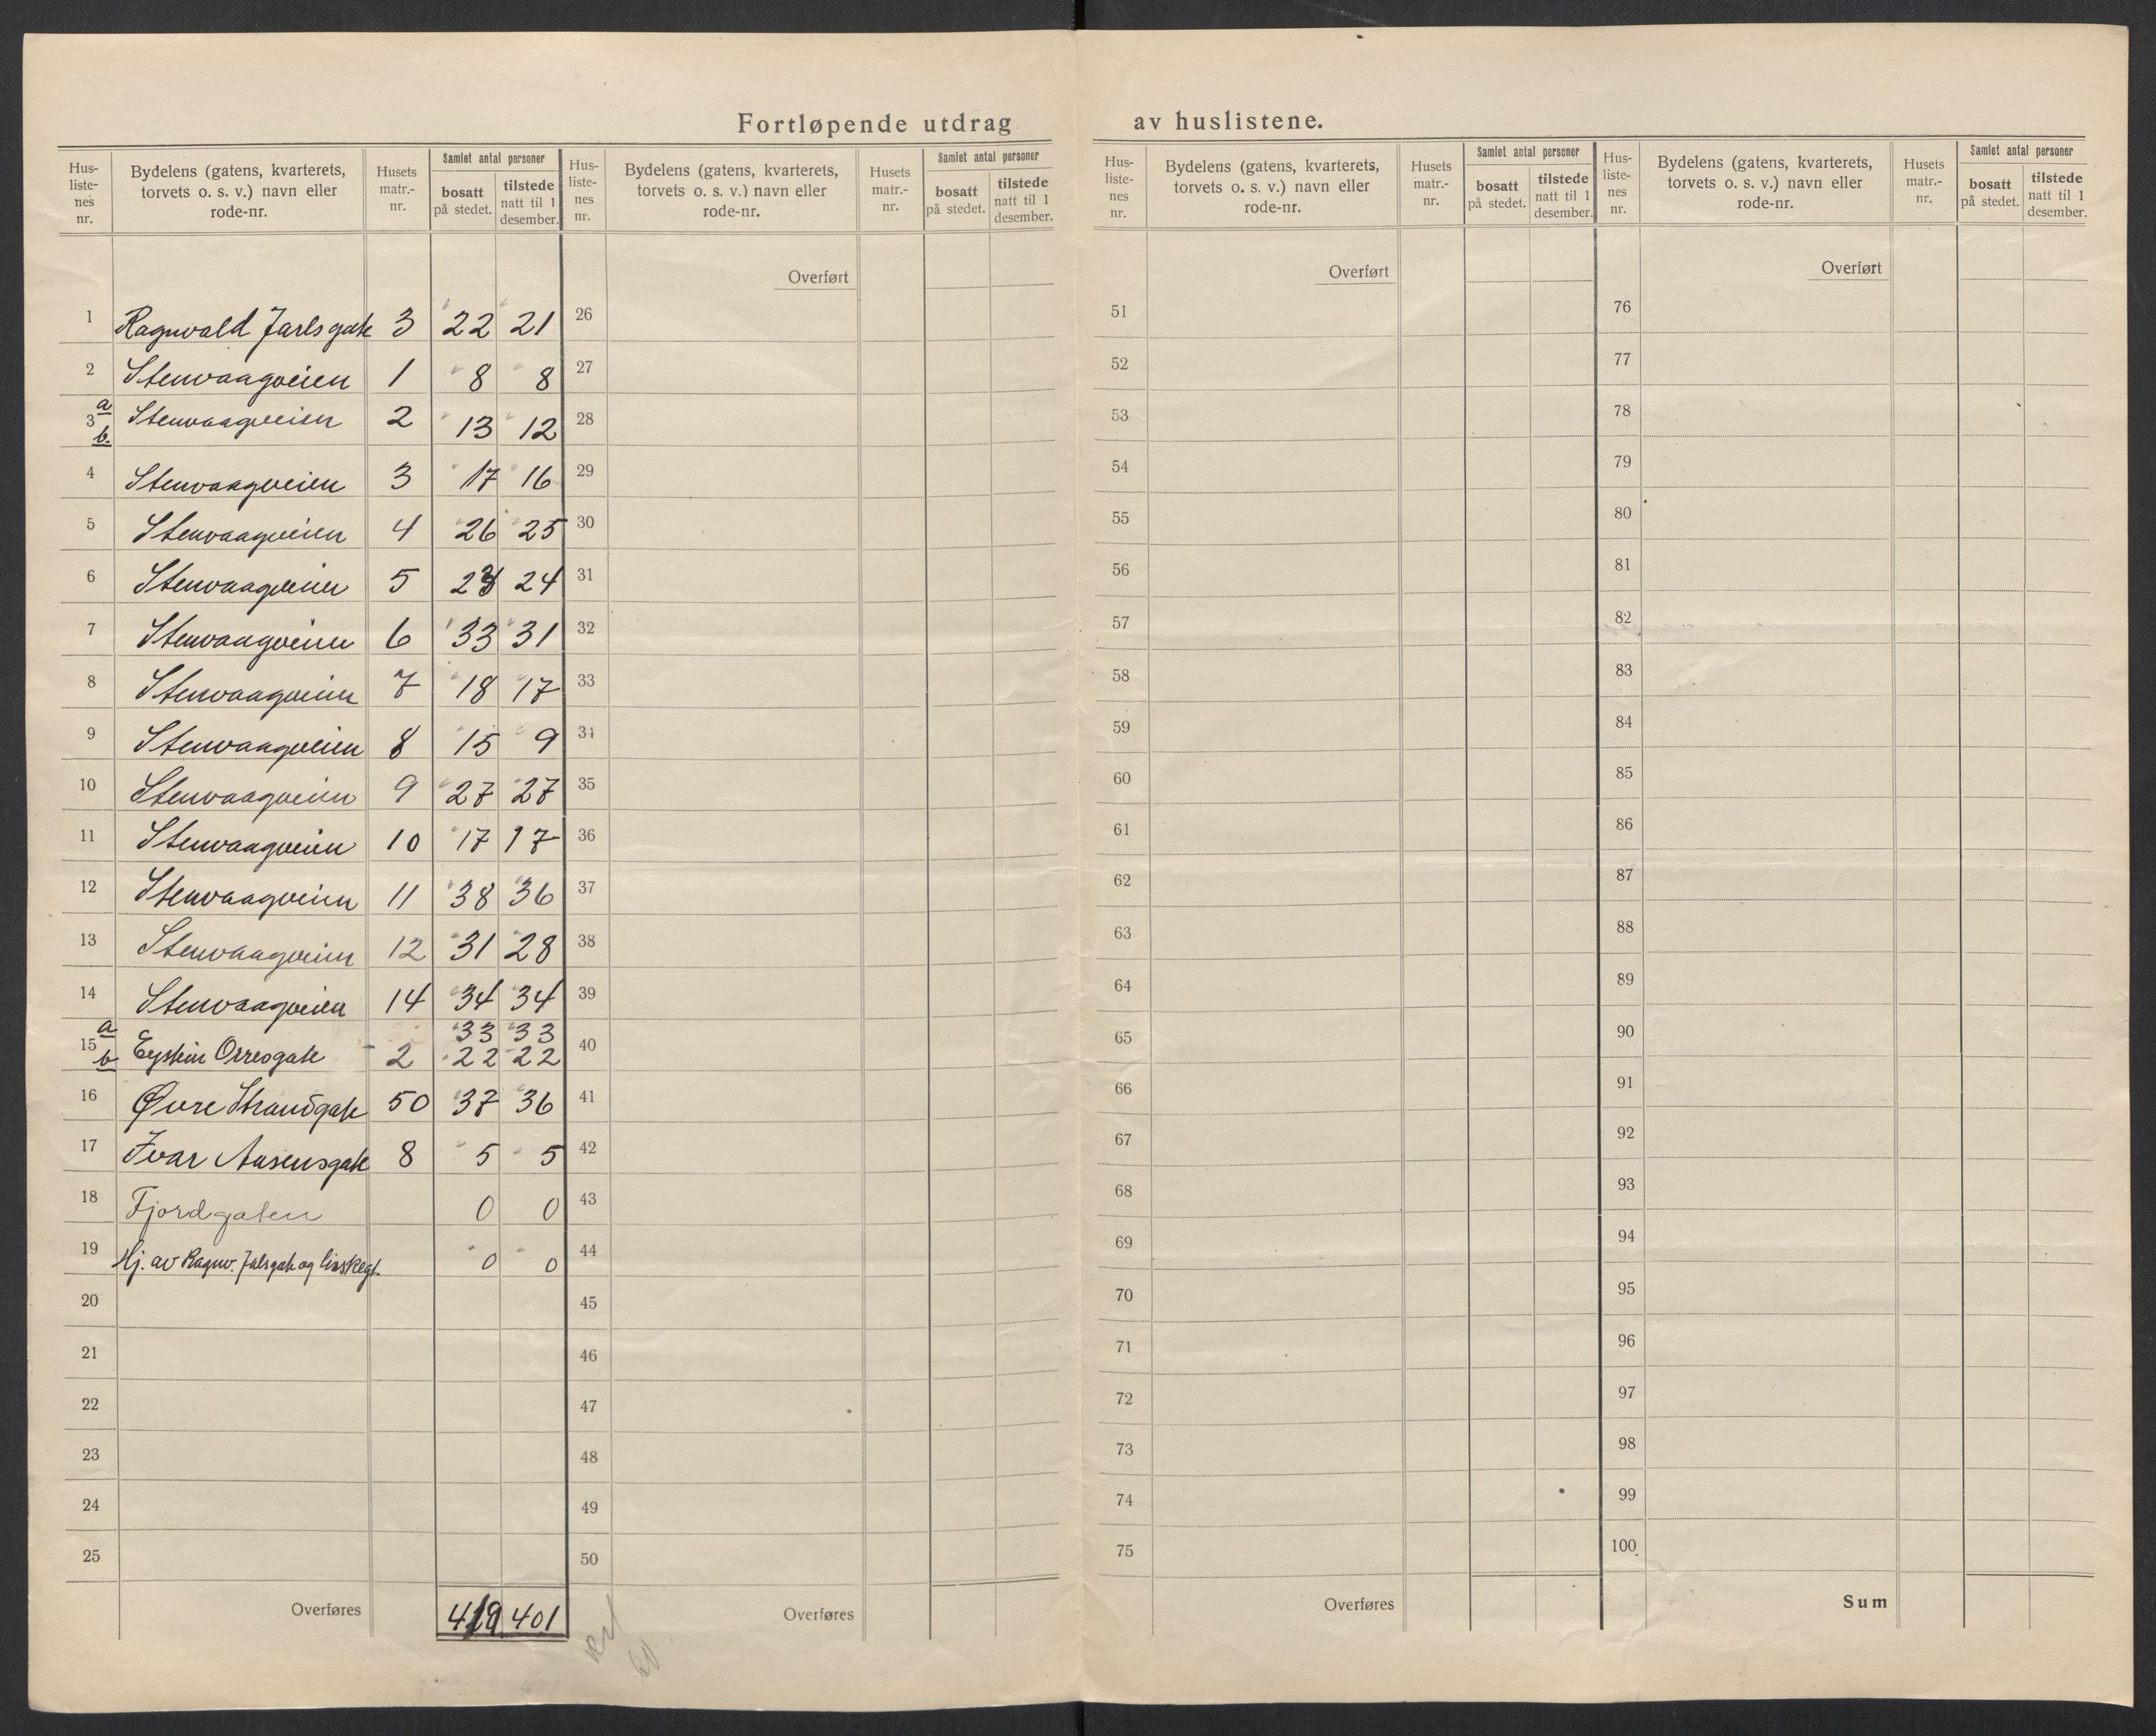 Fortløpende utdrag av huslistene.
Hus-
liste-
nes
nr.
Bydelens (gatens, kvarterets,
torvets o. s. v.) navn eller
rode-nr.
Husets
matr.-
nr.
Samlet antal personer
bosatt
på stedet.
tilstede
natt til 1
desember.
1 Ragnvald Jarlsgate 3 22 21
2 Stenvaagveien 1 8 8
3 a b. Stenvaagveien 2 13 12
4 Stenvaagveien 3 17 16
5 Stenvaagveien 4 26 25
6 Stenvaagveien 5 23 24
7 Stenvaagveien 6 33 31
8 Stenvaagveien 7 18 17
9 Stenvaagveien 8 15 9
10 Stenvaagveien 9 27 27
11 Stenvaagveien 10 17 17
12 Stenvaagveien 11 38 36
13 Stenvaagveien 12 31 28
14 Stenvaagveien 14 34 34
a 33 33
15 b Eystein Orresgate - 2 22 22
16 Øvre Strandgate 50 37 36
17 Ivar Aasensgate 8 5 5
18 Fjordgaten 0 0
19 Hj. av Ragnv. Jalsgate og 0 0
20
21
22
23
24
25
Overføres 419 401
Hus-
liste-
nes
nr.
Bydelens (gatens, kvarterets,
torvets o. s. v.) navn eller
rode-nr.
Husets
matr.-
nr.
Samlet antal personer
bosatt
på stedet.
tilstede
natt til 1
desember.
Overført
26
27
28
29
30
31
32
33
34
35
36
37
38
39
40
41
42
43
44
45
46
47
48
49
50
Overføres
Hus-
liste-
nes
nr.
Bydelens (gatens, kvarterets,
torvets o. s. v.) navn eller
rode-nr.
Husets
matr.-
nr.
Samlet antal personer
bosatt
på stedet.
tilstede
natt til 1
desember.
Overført
51
52
53
54
55
56
57
58
59
60
61
62
63
64
65
66
67
68
69
70
71
72
73
74
75
Overføres
Hus-
liste-
nes
nr.
Bydelens (gatens, kvarterets,
torvets o. s. v.) navn eller
rode-nr.
Husets
matr.-
nr.
Samlet antal personer
bosatt
på stedet.
tilstede
natt til 1
desember.
Overført
76
77
78
79
80
81
82
83
84
85
86
87
88
89
90
91
92
93
94
95
96
97
98
99
100
Sum